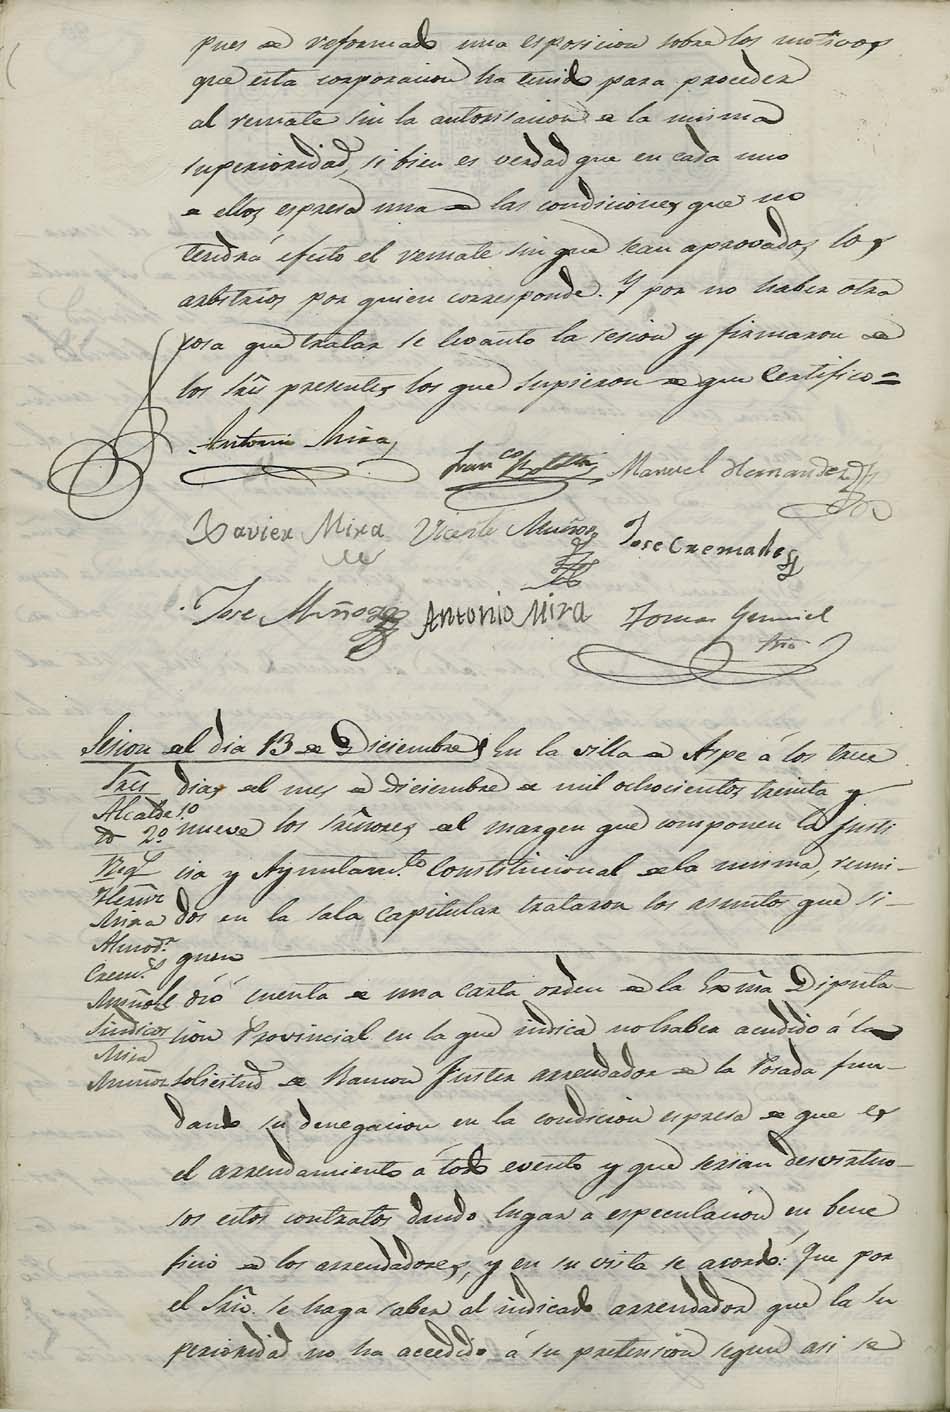 pues de reformado una esposicion sobre los motivos
que esta corporacion ha tenido para proceder
al remate sin la autorisacion de la misma
superioridad, si bien es verdad que en cada uno
de ellos espresa una de las condiciones que no
tendrá efecto el remate sin que sean aprovados los
arbitrios por quien corresponde. Y por no haber otra
cosa que tratar se levantó la sesion y firmaron de
los Sres presentes los que supieron de que Certifico =
Antonio Mira
Franco Manuel Hernandez
Xavier Mira Vicente Muñoz Jose Cremades
Jose Muñoz Antonio Mira Tomas
Srio
Sesion del dia 13 de Diciembre En la villa de Aspe á los trece
Sres dias del mes de Diciembre de mil ochocientos treinta y
Alcalde 1o
id 2o nueve los Señores del margen que componen la Justi
Regs cia y Ayuntamto Constitucional de la misma, reuni-
Hernz
Mira dos en la sala capitular trataron los asuntos que si-
Almodr
guen
Crems
Muñoz Se dió cuenta de una carta orden de la Exma Diputa-
Sindicos cion Provincial en la que indica no haber acudido á la
Mira
Muñoz solicitud de Ramon Juster arrendador de la Posada fun-
dando su denegacion en la condicion espresa de que es
el arrendamiento á todo evento y que serian desvirtuo-
sos estos contratos dando lugar á especulacion en bene
ficio de los arrendadores, y en su vista se acordó: Que por
el Srio. se haga saber al indicado arrendador que la su
perioridad no ha accedido á su pretension segun asi se